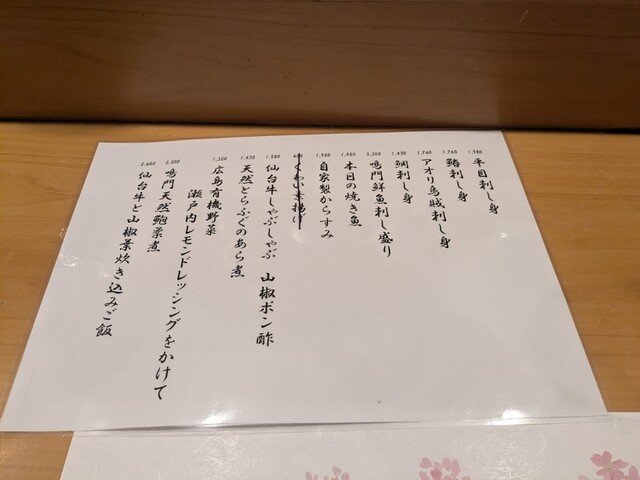 1,980
平目刺し身
1,760
鰆刺し身
1,760
アオリ烏賊刺し身
1,430
鯛刺し身
3,300
鳴門鮮魚刺し盛り
1,980
本日の焼き魚
1,980
自家製からすみ
1,980
仙台牛しゃぶしゃぶ 山椒ポン酢
1,430
天然とらふぐのあら煮
1,320
広島有機野菜
瀬戸内レモンドレッシングをかけて
2,200
鳴門天然鮑柔煮
2,640
仙台牛と山椒葉炊き込みご飯